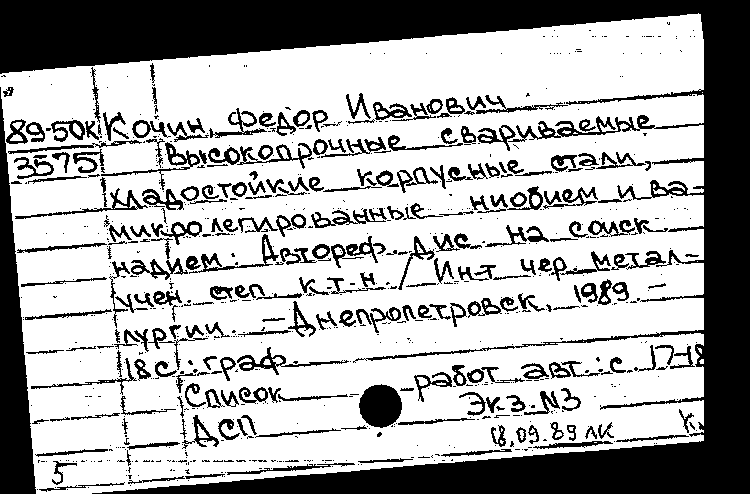 89-50К Кочин, Федор Иванович
3575 Высокопрочные свариваемые
хладостойкие корпусные стали,
микролегированные ниобием и ва-
надием: Автореф. дис. на соиск.
учен. степ. к.т.н. / Ин-т чер. метал-
лургии. — Днепропетровск, 1989 —
18 с.: граф.
Список работ авт.: с. 17-18
ДСП Экз. N3
18.09.89 ЛК К.
5